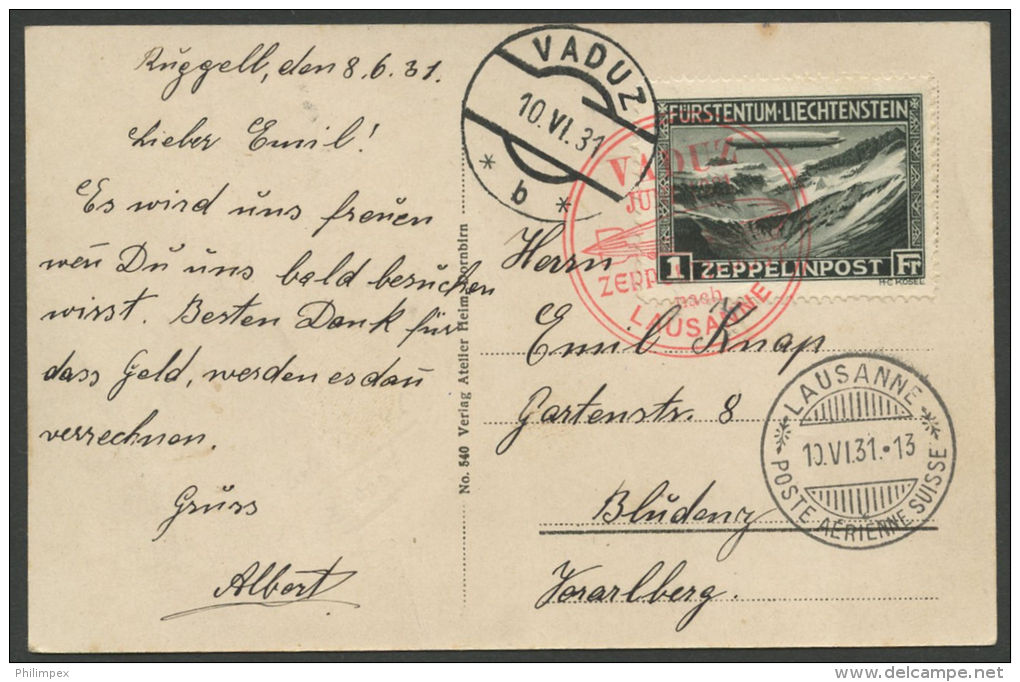 Ruggell, den 8.6.31.
Lieber Emil!
Es wird uns freuen
weñ Du uns bald besuchen
wirst. Besten Dank für
dass Geld, werden es dañ
verrechnen.
Gruss
Albert
No. 540 Verlag Atelier Heim Dornbirn
VADUZ
10.VI.31
* b *
VADUZ
ZEPP
nach
LAUSANNE
FÜRSTENTUM·LIECHTENSTEIN
1 ZEPPELINPOST Fr
H·C·KOSEL
Herrn
Emil Knap
Gartenstr. 8
Bludenz
Vorarlberg.
LAUSANNE
10.VI.31.•13
POSTE AÉRIENNE SUISSE
Philimpex
delcampe.net